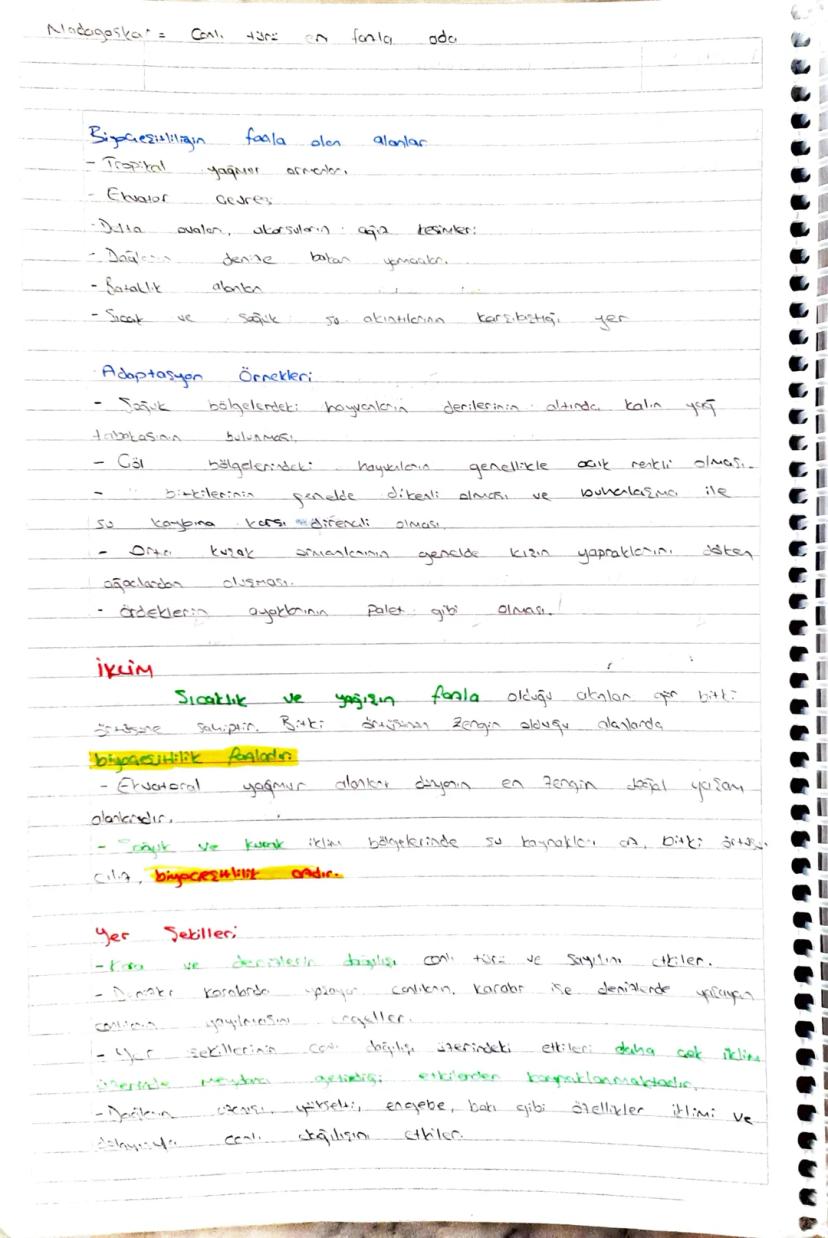 Madagaskar = Canlı türü en fazla ada
Biyoçeşitliliğin fazla olan alanlar
- Tropikal yağmur ormanları
- Ekvator çevresi
- Delta ovaları, akarsuların ağız kesimleri
- Dağların denize bakan yamaçları
- Bataklık alanları
- Sıcak ve soğuk su akıntılarının karşılaştığı yer
Adaptasyon Örnekleri
- Soğuk bölgelerdeki hayvanların derilerinin altında kalın yağ
tabakasının bulunması.
- Çöl bölgelerindeki hayvanların genellikle açık renkli olması.
- " bitkilerinin genelde dikenli olması ve buharlaşma ile
su kaybına karşı dirençli olması.
- Orta kuşak ormanlarının genelde kışın yapraklarını döken
ağaçlardan oluşması.
- Ördeklerin ayaklarının palet gibi olması.
İKLİM
Sıcaklık ve yağışın fazla olduğu alanlar gür bitki
örtüsüne sahiptir. Bitki örtüsünün zengin olduğu alanlarda
biyoçeşitlilik fazladır.
- Ekvatoral yağmur alanları dünyanın en zengin doğal yaşam
alanlarıdır.
- Soğuk ve kurak iklim bölgelerinde su kaynakları az, bitki örtüsü
cılız, biyoçeşitlilik azdır.
Yer Şekilleri
- Kara ve denizlerin dağılışı canlı türü ve sayısını etkiler.
- Denizler karalarda yaşayan canlıların, karalar ise denizlerde yaşayan
canlıların yayılmasını engeller.
- Yer şekillerinin canlı dağılışı üzerindeki etkileri daha çok iklim
üzerinde meydana getirdiği etkilerden kaynaklanmaktadır.
- Dağların uzanışı, yükselti, engebe, bakı gibi özellikler iklimi ve
dolayısıyla canlı dağılışını etkiler.